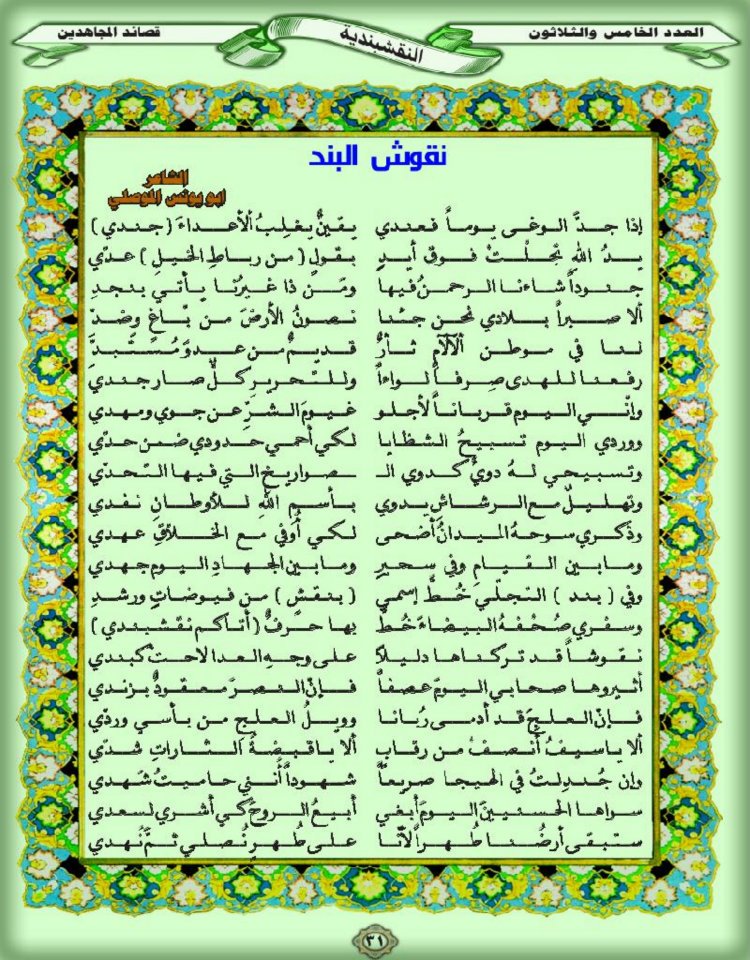 العدد الخامس والثلاثون
النقشبندية
قصائد المجاهدين
نقوش البند
الشاعر
ابو يونس الموصلي
إذا جدَّ الوغى يوماً فعندي يقينٌ يغلِبُ الأعداءَ (جندي)
يدُ اللهِ تجلّتْ فوق أيدٍ بقولٍ (من رباطِ الخيلِ) عدّي
جنوداً شاءنا الرحمنُ فيها ومَن ذا غيرُنا يأتي بنجدِ
ألا صبراً بلادي نحن جئنا نصونُ الأرضَ من بّاغٍ وضدّ
لنا في موطن الآلآم ثأرٌ قديمٌ من عدوٍ مُستبدَّ
رفعنا للهدى صِرفاً لواءاً وللتحريرِ كلٌ صار جندي
وإنّي اليوم قرباناً لأجلو غيومَ الشرِّ عن جوي ومهدي
ووردي اليوم تسبيحُ الشظايا لكي أحمي حدودي ضمن حدّي
وتسبيحي لهُ دويٌ كدوي الـ ـصواريخِ التي فيها التحدّي
وتهليلٌ مع الرشاشِ يدوي بأسمِ اللهِ للأوطانِ نفدي
وذكري سوحهُ الميدانُ أضحى لكي أوفي مع الخلاّقِ عهدي
وما بين القيامِ وفي سحيرٍ وما بين الجهادِ اليوم جهدي
وفي (بند) التجلّي خُطَّ إسمي (بنقشٍ) من فيوضاتٍ ورشدِ
وسفري صُحْفهُ البيضاءَ خُطَّ بها حرفٌ (أتاكم نقشبندي)
نقوشاً قد تركناها دليلا على وجهِ العدا لاحتْ كبندي
أثيروها صحابي اليومَ عصفاً فإنّ النصرَ معقودٌ بزندي
فإنّ العلجَ قد أدمى رُبانا وويلُ العلجِ من بأسي وردّي
ألا ياسيفُ أنصفْ من رقابٍ ألا ياقبضةُ الثاراتِ شدّي
وإن جُندِلتُ في الهيجا صريعاً شهوداً أنني حاميتُ شهدي
سواها الحسنيينَ اليومَ أبغي أبيعُ الروحَ كي أشري لسعدي
ستبقى أرضُنا طُهراً لأنّا على طُهرٍ نُصلي ثمَّ نُهدي
٣١